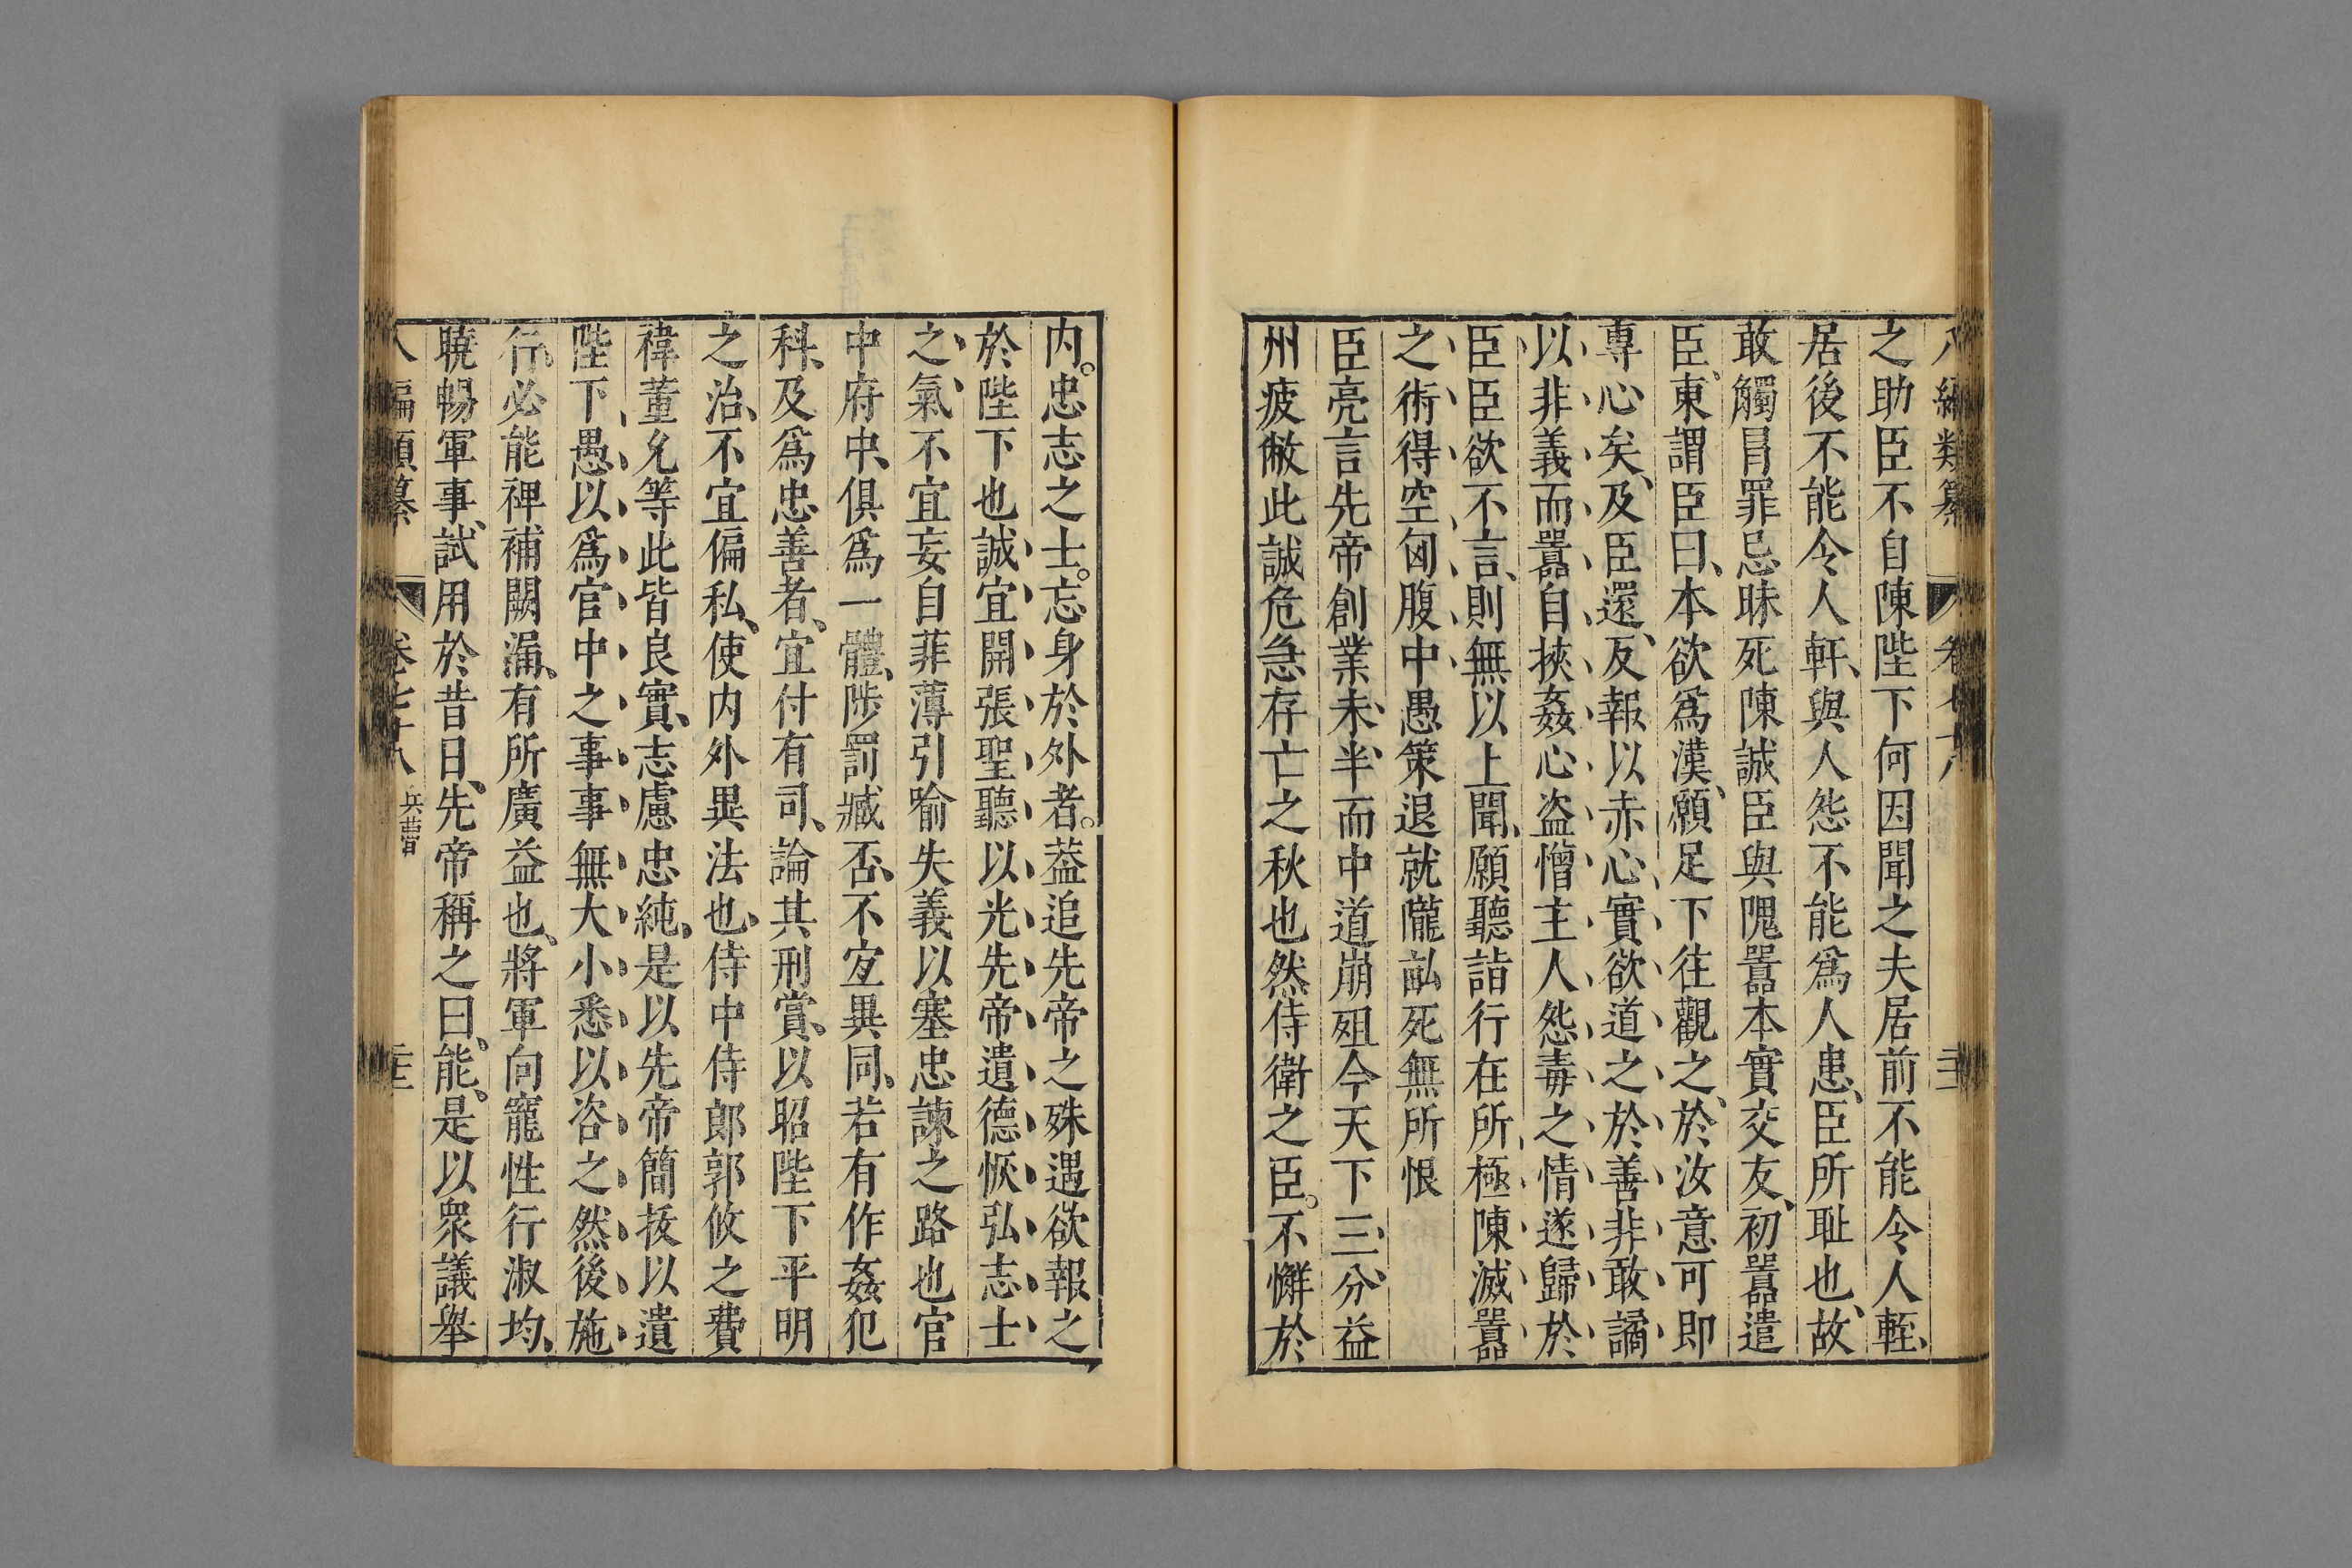 八編類纂 卷七十八
之助臣不自陳陛下何因聞之夫居前不能令人輊、
居後不能令人軒、與人怨不能爲人患、臣所耻也、故
敢觸冐罪忌昧死陳誠臣與隗囂本實交友、初囂遣
臣、東謂臣曰、本欲爲漢、願足下往觀之、於汝意可即
專心矣、及臣還、反報以赤心實欲道之於善非敢譎
以非義而囂自挾姦心盗憎主人怨毒之情遂歸於
臣臣欲不言、則無以上聞、願聽詣行在所、極陳滅囂
之術得空匈腹中愚策退就隴畝死無所恨
臣亮言先帝創業未半而中道崩殂今天下三分益
州疲敝此誠危急存亡之秋也然侍衛之臣。不懈於
内。忠志之士。忘身於外者。葢追先帝之殊遇欲報之
於陛下也誠宜開張聖聽以光先帝遺德恢弘志士
之氣不宜妄自菲薄引喻失義以塞忠諫之路也官
中府中、俱爲一體、陟罰臧否、不宐異同、若有作姦犯
科、及爲忠善者、宜付有司、論其刑賞、以昭陛下平明
之治、不宜偏私、使内外異法也、侍中侍郎郭攸之費
禕董允等此皆良實、志慮忠純、是以先帝簡抜以遺
陛下、愚以爲官中之事事無大小悉以咨之然後施
行、必能裨補闕漏、有所廣益也、將軍向寵性行淑均、
曉暢軍事、試用於昔日、先帝稱之曰、能、是以衆議舉
八編類纂 卷七十八 兵曹